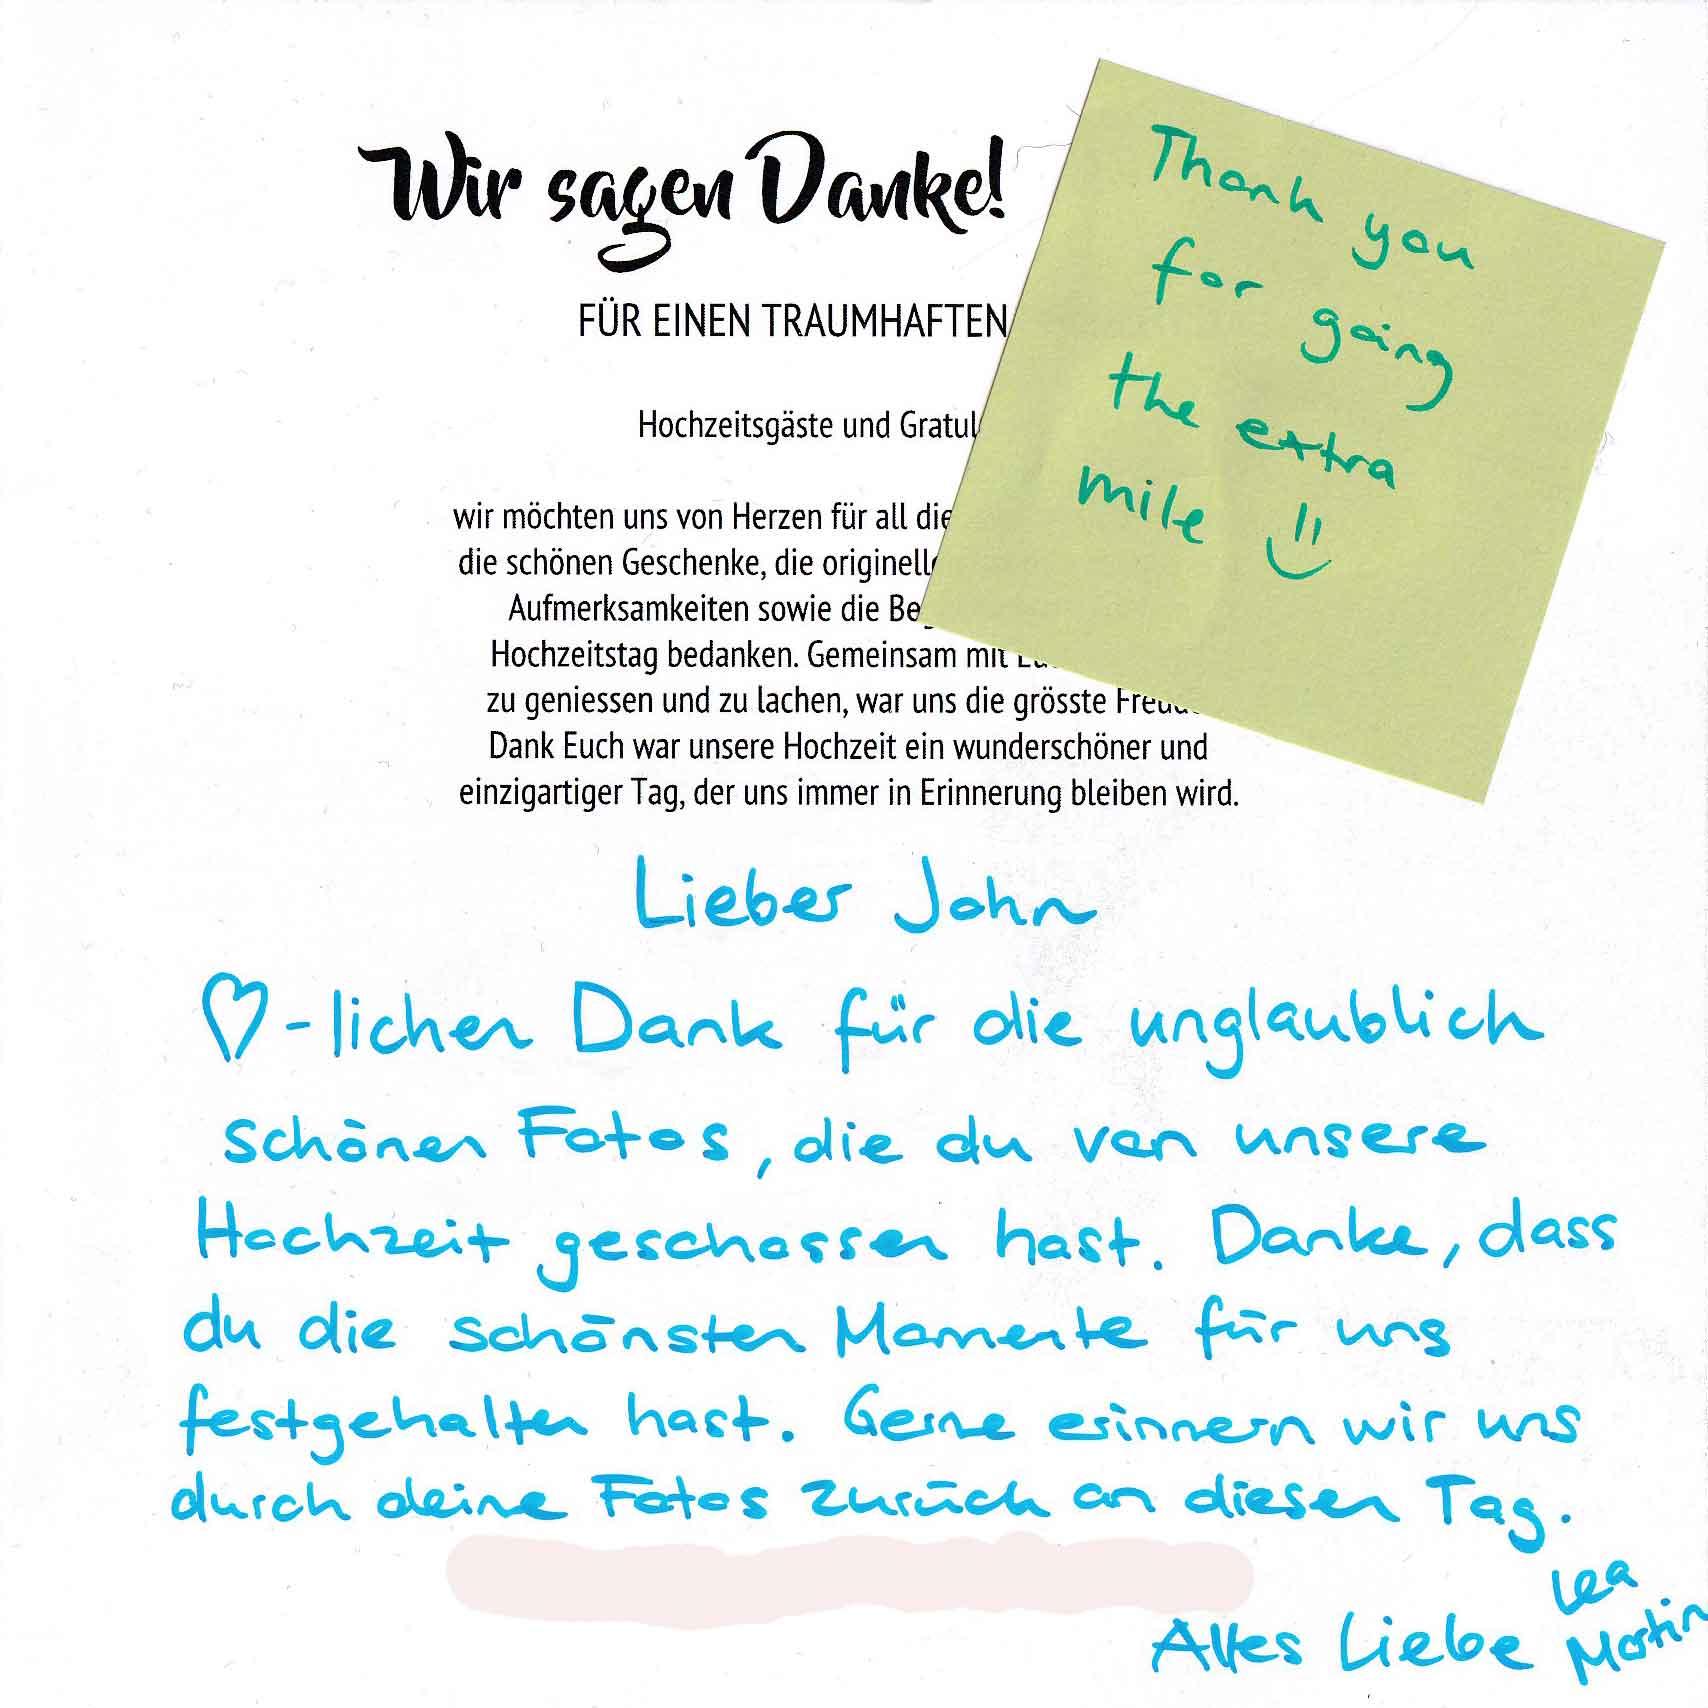 Wir sagen Danke!
FÜR EINEN TRAUMHAFTEN
Hochzeitsgäste und Gratul
wir möchten uns von Herzen für all die
die schönen Geschenke, die originell
Aufmerksamkeiten sowie die Be
Hochzeitstag bedanken. Gemeinsam mit
zu geniessen und zu lachen, war uns die grösste Freud
Dank Euch war unsere Hochzeit ein wunderschöner und
einzigartiger Tag, der uns immer in Erinnerung bleiben wird.
Thank you
for going
the extra
mile
Lieber John
♡-lichen Dank für die unglaublich
schönen Fotos, die du von unsere
Hochzeit geschossen hast. Danke, dass
du die schönsten Momente für uns
festgehalten hast. Gerne erinnern wir uns
durch deine Fotos zurück an diesen Tag.
Alles Liebe
Lea
Martin